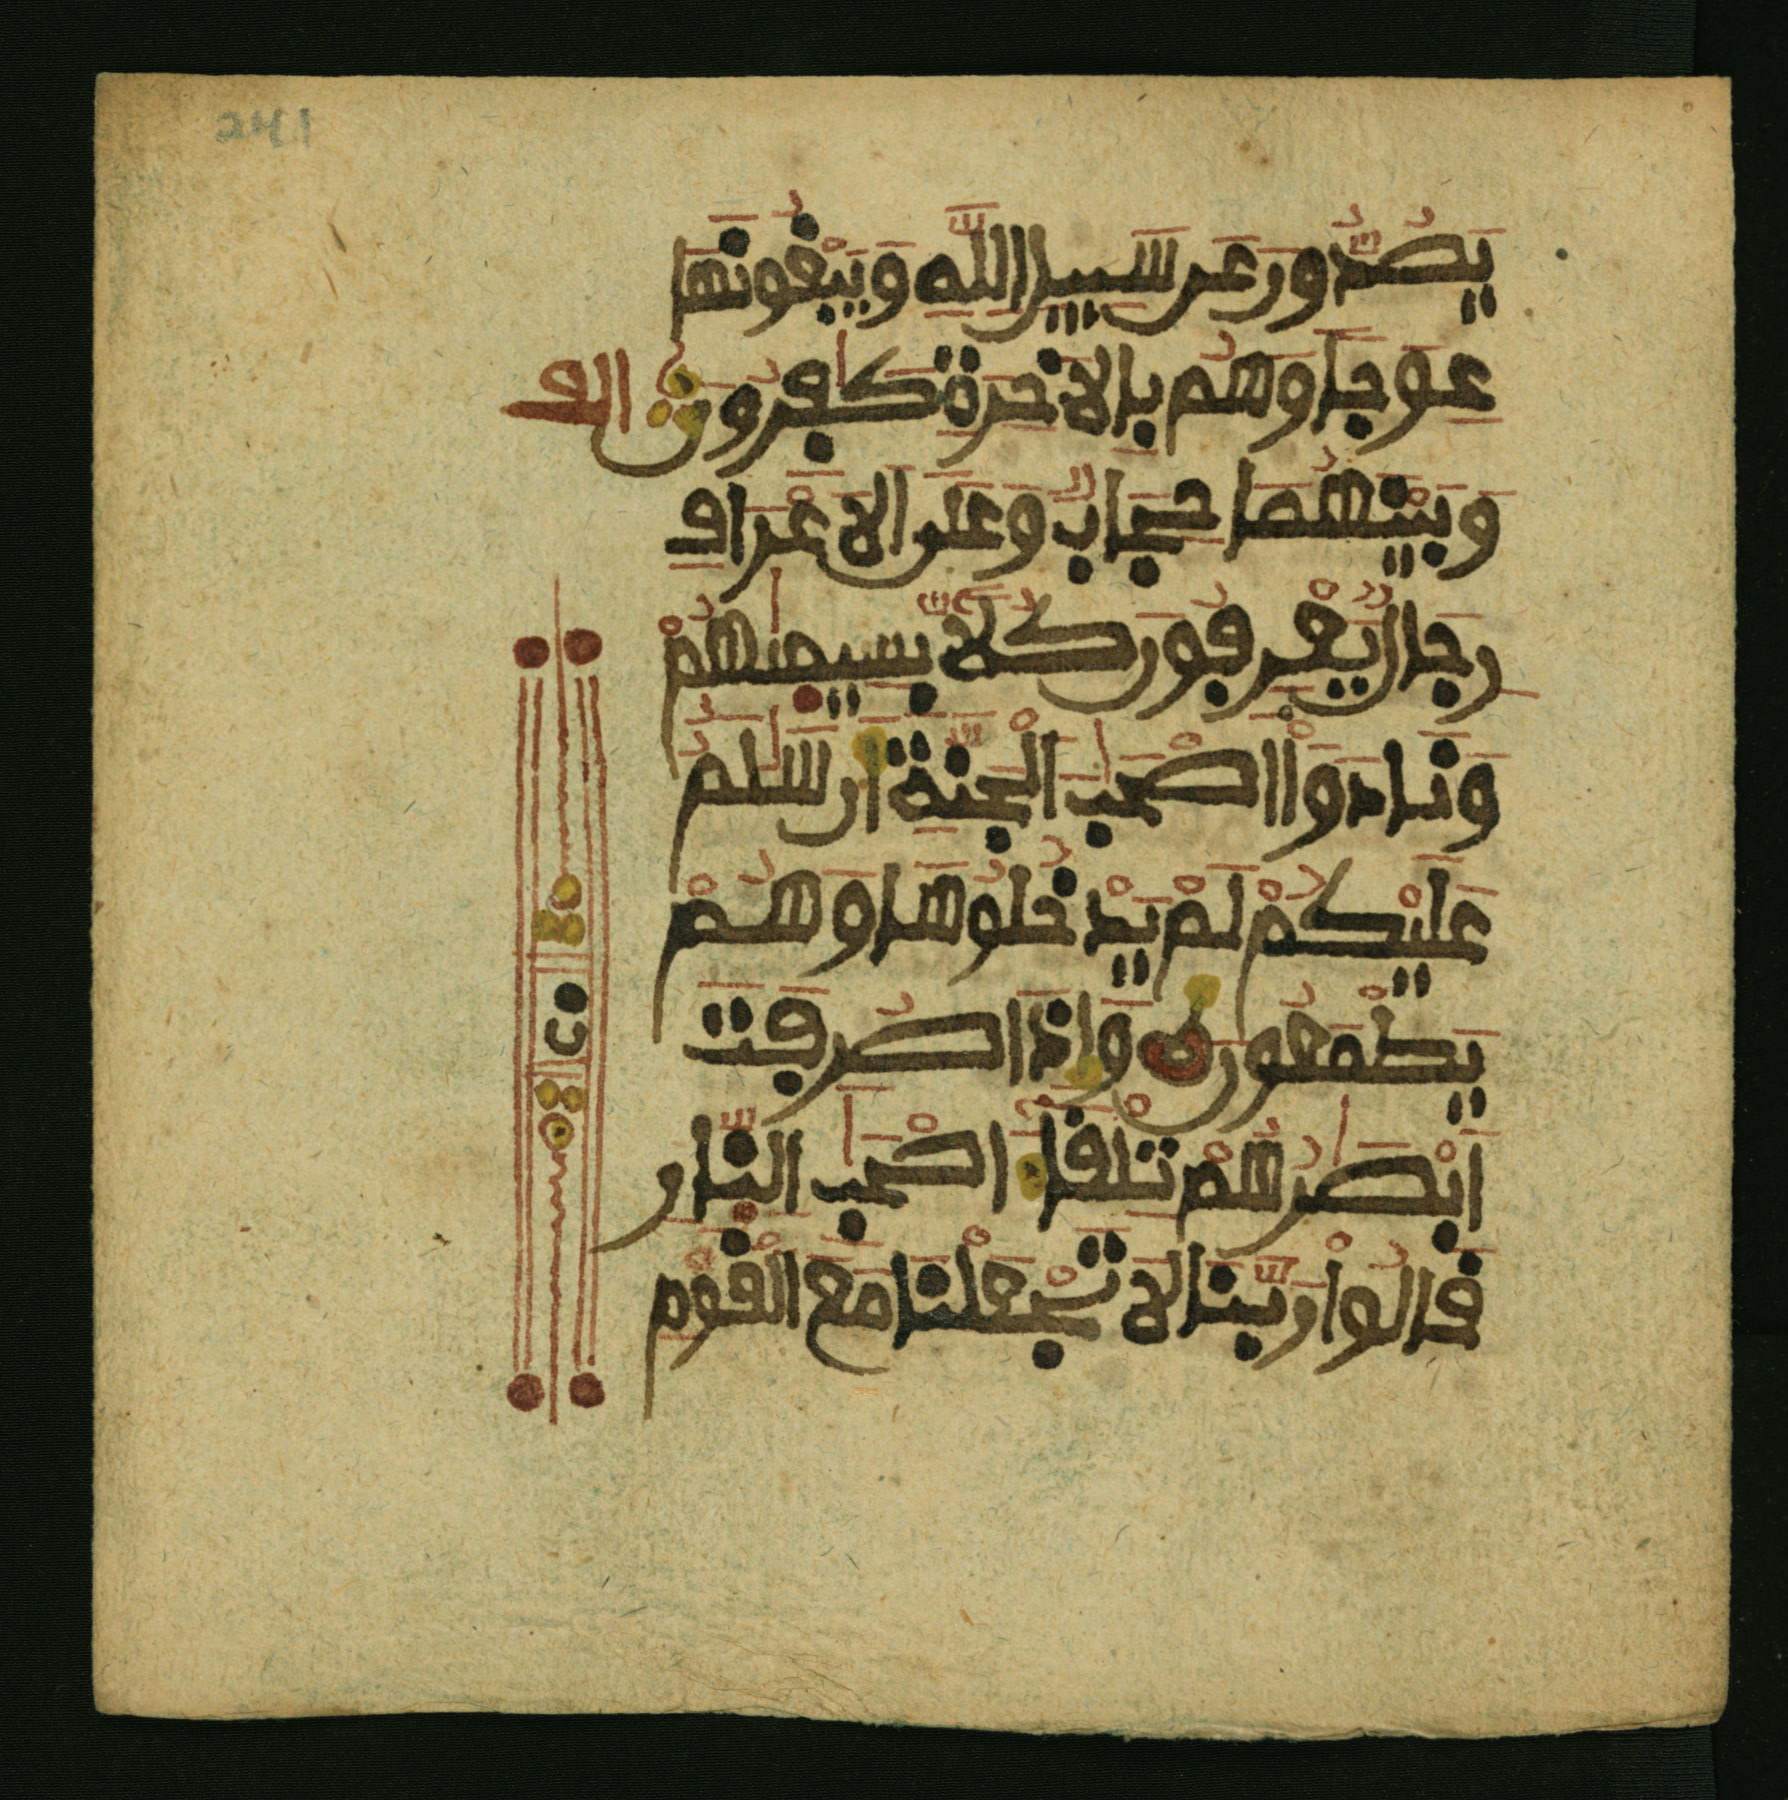 241
يَصُدُّونَ عَن سَبِيلِ اللَّهِ وَيَبْغُونَهَا
عِوَجًا وَهُم بِالَاخِرَةِ كَٰفِرُونَ
وَبَيْنَهُمَا حِجَابٌ وَعَلَى الَاعْرَافِ
رِجَالٌ يَعْرِفُونَ كُلَّا بِسِيمَٰهُمْ
وَنَادَوْا اصْحَٰبَ الْجَنَّةِ أَن سَلَٰمٌ
عَلَيْكُمْ لَمْ يَدْخُلُوهَا وَهُمْ
يَطْمَعُونَ وَإِذَا صُرِفَتَ
ابْصَٰرُهُمْ تِلْقَا اصْحَٰبِ النَّارِ
قَالُوا رَبَّنَا لَا تَجْعَلْنَا مَعَ الْقَوْمِ